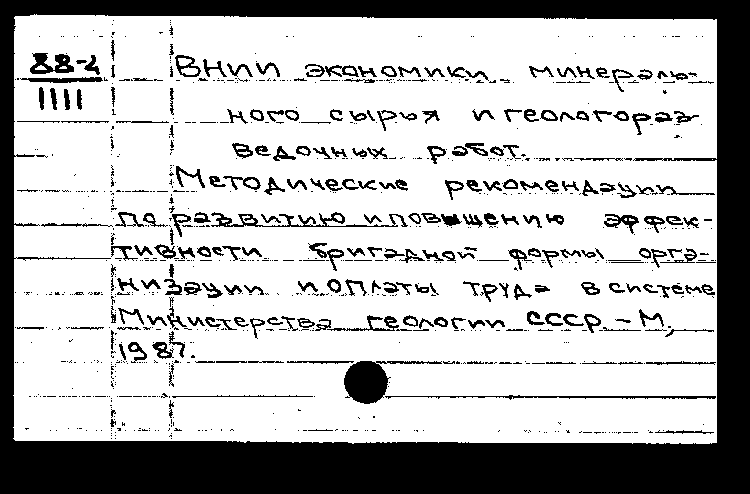 88-4
1111
ВНИИ экономики минераль-
ного сырья и геологораз-
ведочных работ.
Методические рекомендации
по развитию и повышению эффек-
тивности бригадной формы орга-
низации и оплаты труда в системе
Министерства геологии СССР. - М,
1987.